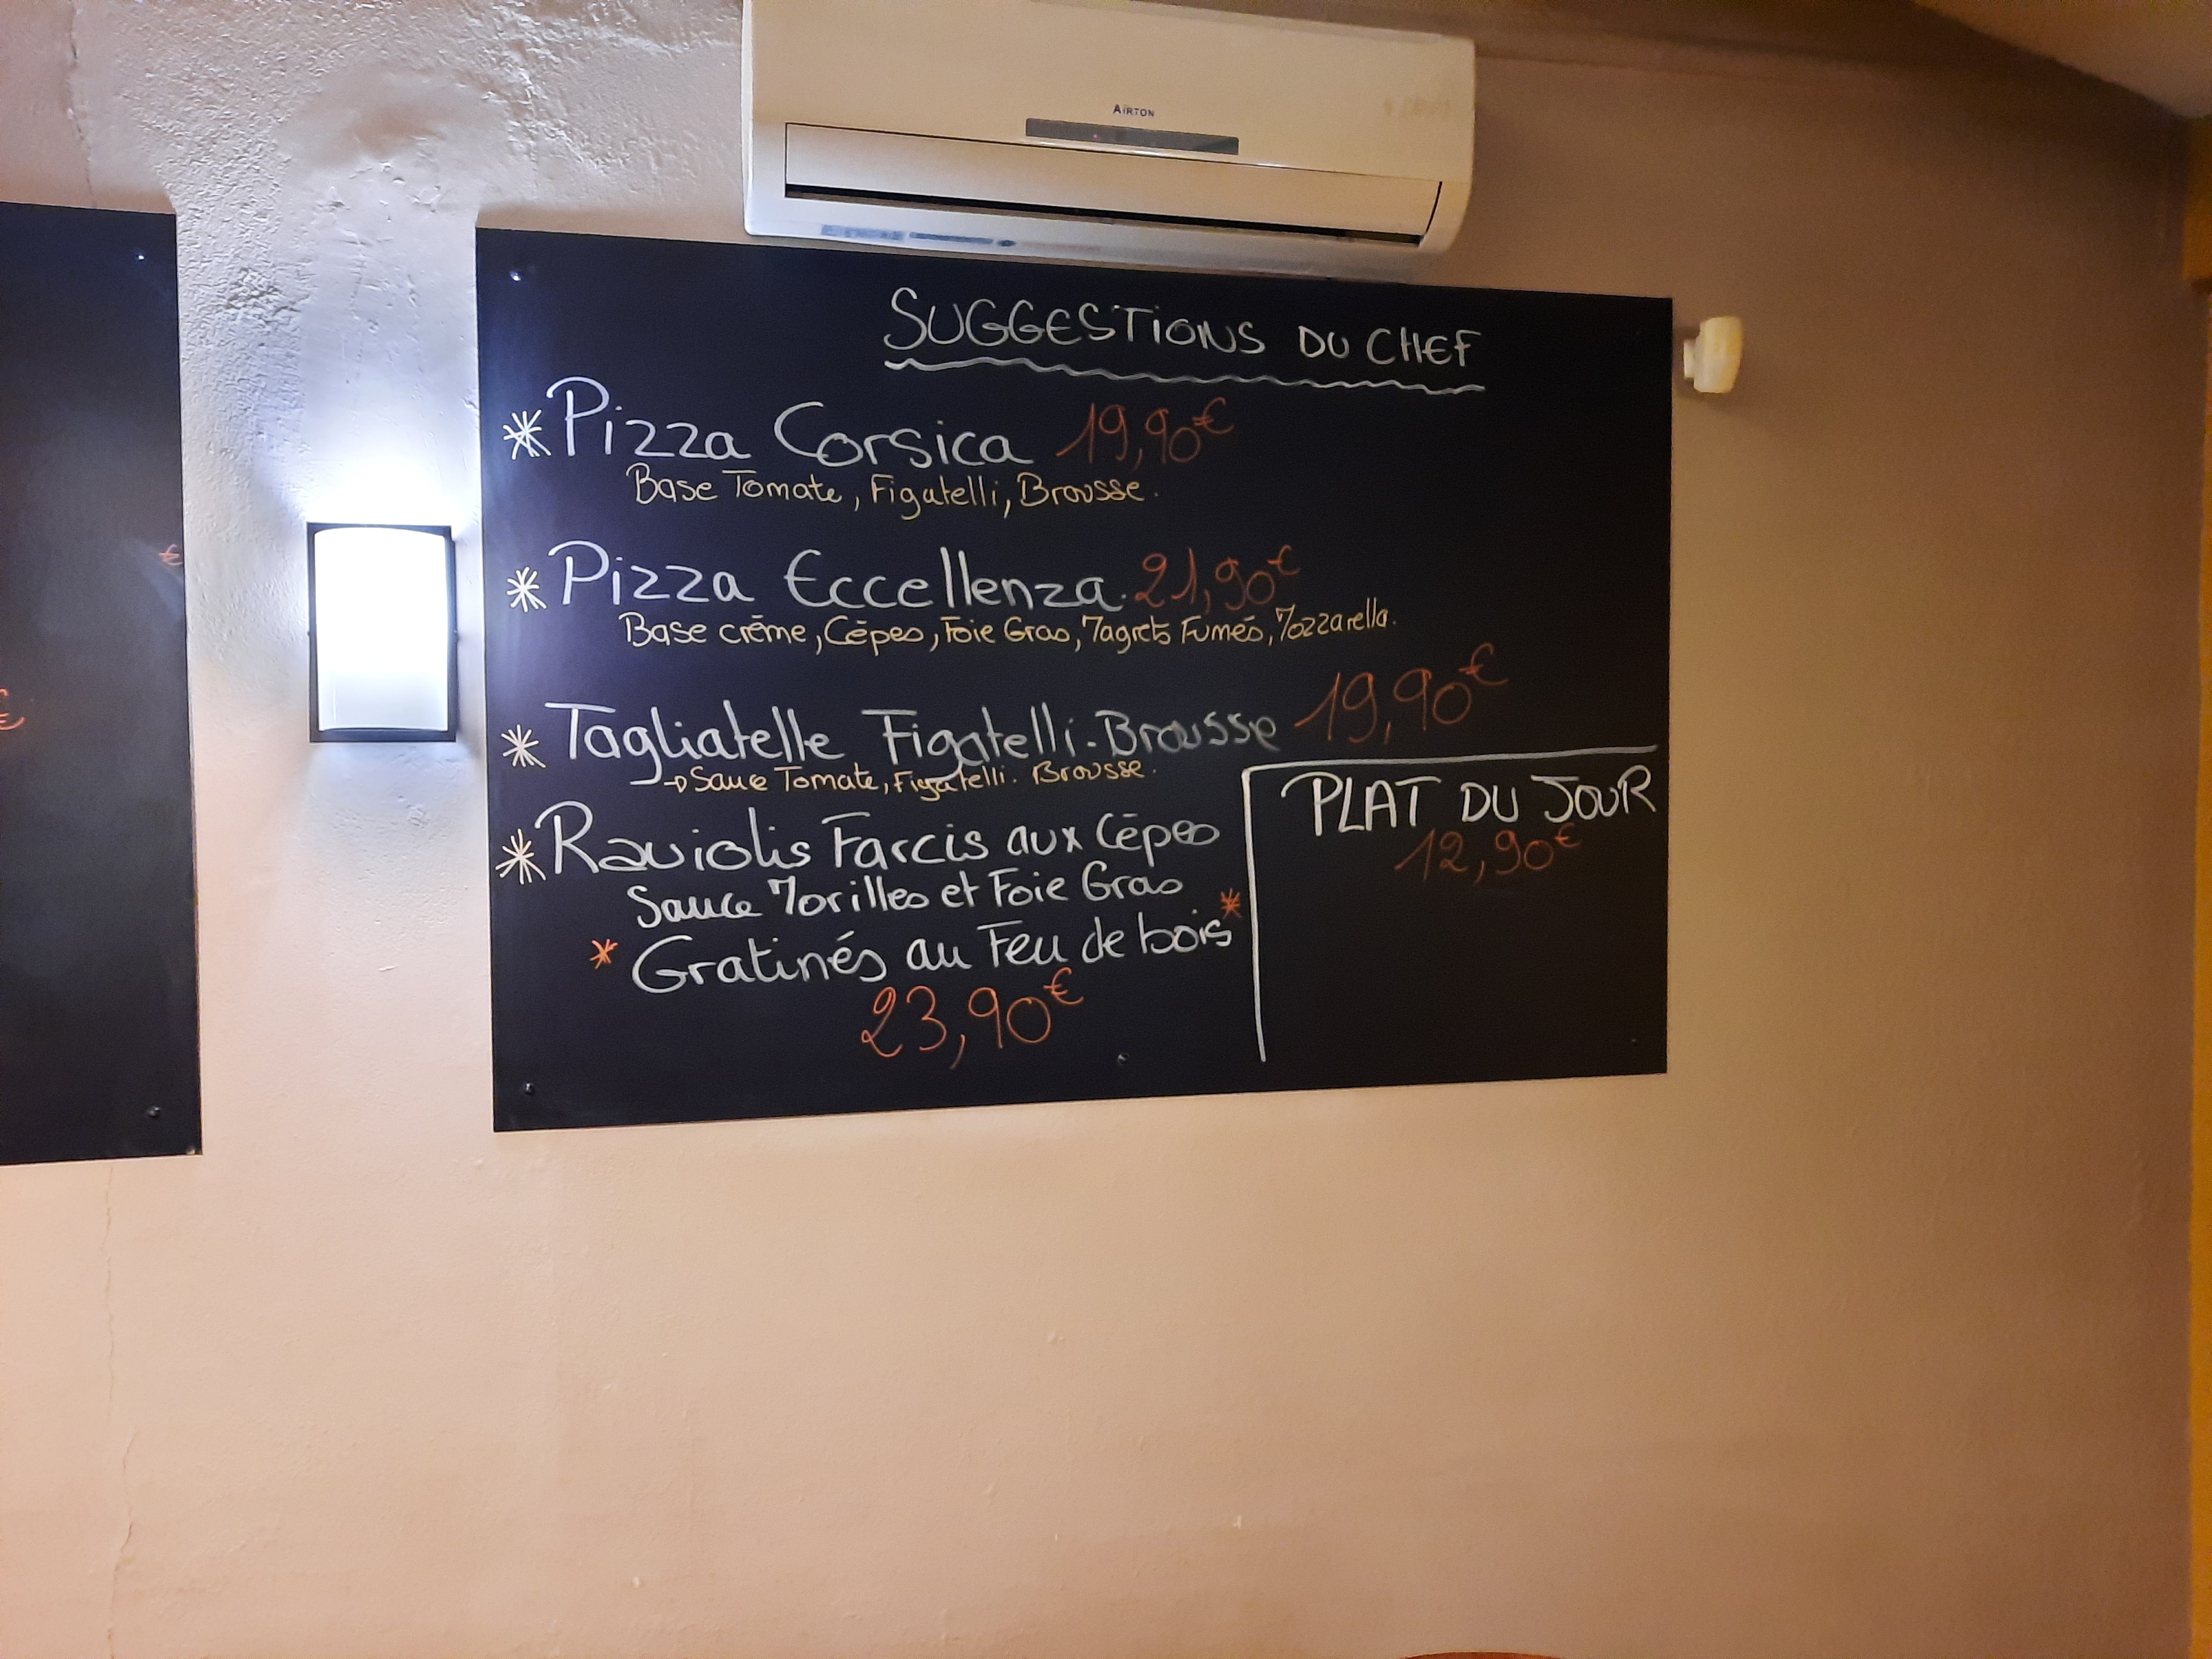 AIRTON
SUGGESTIONS DU CHEF
* Pizza Corsica 19,90€
Base Tomate, Figatelli, Brousse.
* Pizza Eccellenza. 21,90€
Base crème, Cèpes, Foie Gras, Magrets Fumés, Mozzarella.
* Tagliatelle Figatelli-Brousse 19,90€
→ Sauce Tomate, Figatelli. Brousse.
* Raviolis Farcis aux Cèpes
Sauce Morilles et Foie Gras
* Gratinés au Feu de bois *
23,90€
PLAT DU JOUR
12,90€
€
€